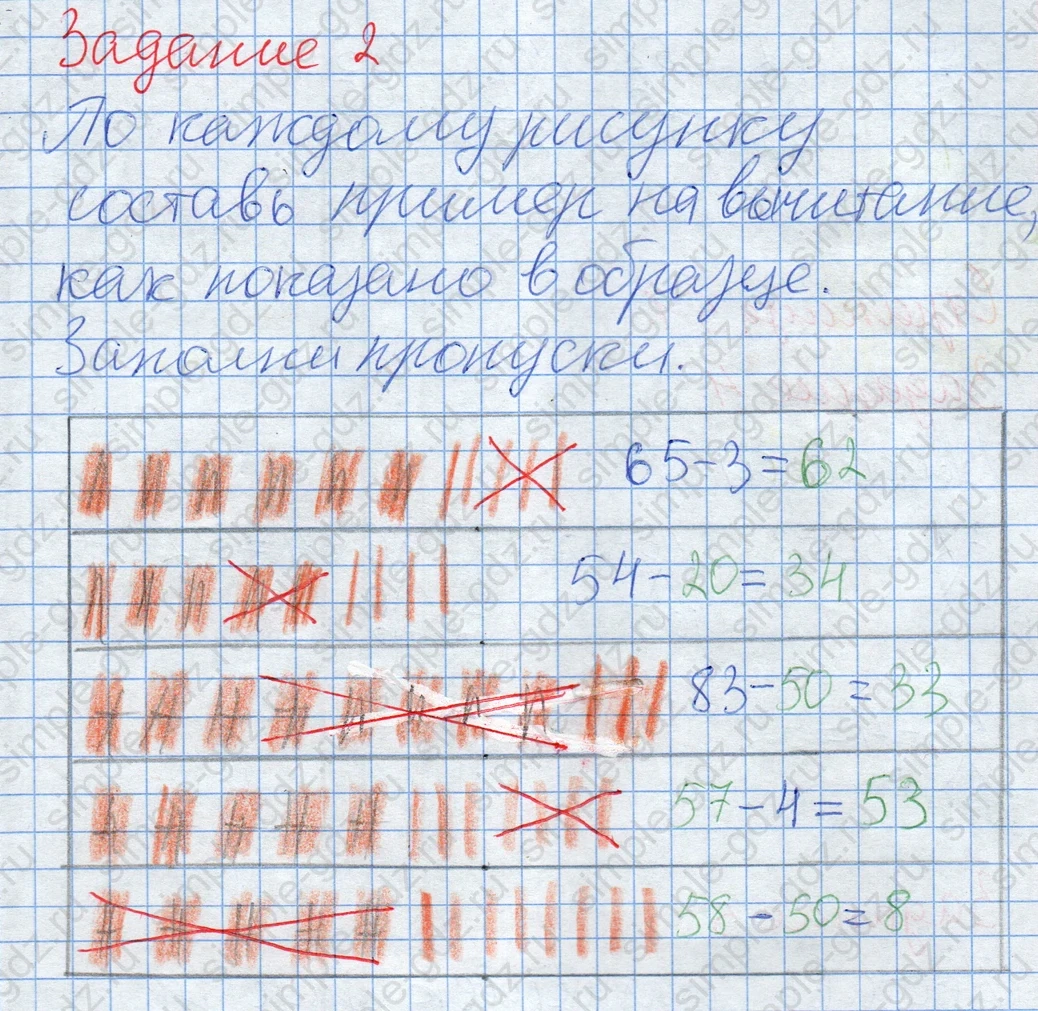 Задание 2
По каждому рисунку
составь пример на вычитание,
как показано в образце.
Заполни пропуски.
65-3=62
54-20=34
83-50=33
57-4=53
58-50=8
simple-gdz.ru